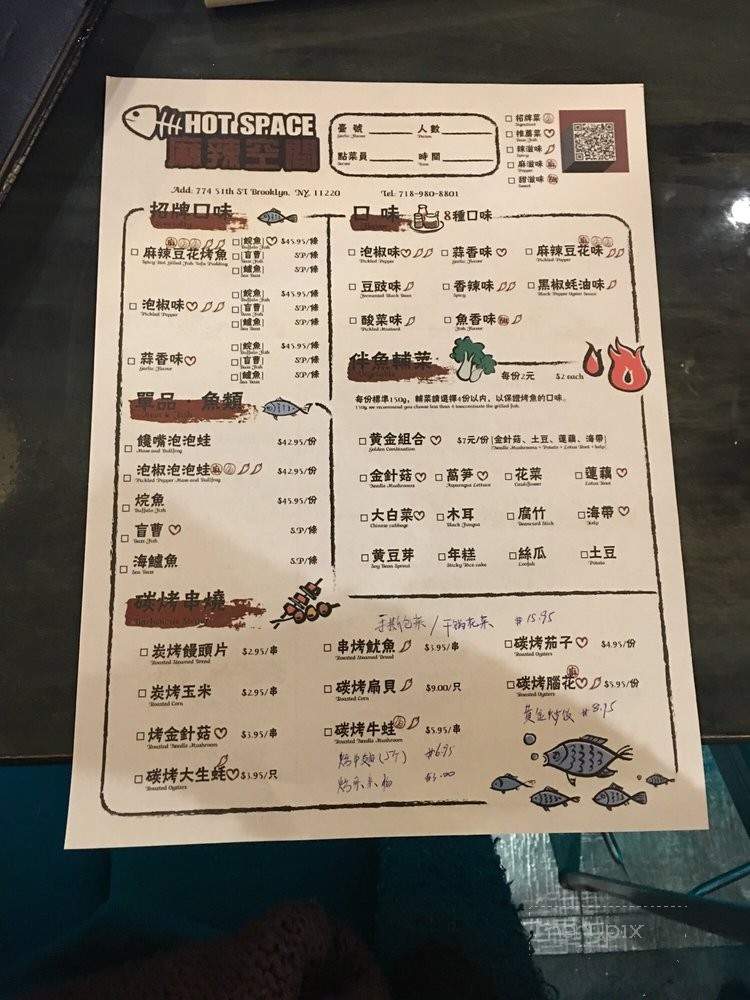 HOT SPACE
麻辣空間
臺號 人數
點菜員 時間
招牌菜
推薦菜
辣滋味
麻滋味
甜滋味
Add: 774 51th ST Brooklyn, NY, 11220 Tel: 718-980-8801
招牌口味
麻辣豆花烤魚
Spicy Hot Grilled Fish Tofu Pudding
[鯇魚] $45.95/條
Buffalo Fish
[盲曹] S.P/條
Bass Fish
[鱸魚] S.P/條
Sea Bass
泡椒味
Pickled Pepper
[鯇魚] $45.95/條
Buffalo Fish
[盲曹] S.P/條
Bass Fish
[鱸魚] S.P/條
Sea Bass
蒜香味
Garlic Flavor
[鯇魚] $45.95/條
Buffalo Fish
[盲曹] S.P/條
Bass Fish
[鱸魚] S.P/條
Sea Bass
口味 8種口味
泡椒味 蒜香味 麻辣豆花味
Pickled Pepper Garlic Flavor Pickled Pepper
豆豉味 香辣味 黑椒蚝油味
Fermented Black Bean Spicy Black Pepper Oyster Sauce
酸菜味 魚香味
Pickled Mustard Fish Flavor
伴魚輔菜 每份2元 $2 each
每份標準150g，輔菜請選擇4份以内，以保證烤魚的口味。
150g we recommend you choose less than 4 to
黃金組合 $7元/份 [金針菇、土豆、蓮藕、海帶]
Golden Combination [Needle Mushrooms + Potato + Lotus Root + kelp]
金針菇 萵笋 花菜 蓮藕
Needle Mushrooms Asparagus Lettuce Cauliflower Lotus Root
大白菜 木耳 腐竹 海帶
Chinese cabbage Black Fungus Beancurd Stick Kelp
黄豆芽 年糕 絲瓜 土豆
Soy Bean Sprout Sticky Rice cake Loofah Potato
單品 魚類
饞嘴泡泡蛙 $42.95/份
泡椒泡泡蛙 $42.95/份
浣魚 $45.95/份
Buffalo Fish
盲曹 S.P/條
Bass Fish
海鱸魚 S.P/條
Sea Bass
碳烤串燒
$15.95
炭烤饅頭片 $2.95/串
Roasted Steamed Bread
串烤魷魚 $3.95/串
Roasted Steamed Bread
碳烤茄子 $4.95/份
Roasted Oysters
炭烤玉米 $2.95/串
Roasted Corn
碳烤扇貝 $9.00/只
Roasted Corn
碳烤腦花 $5.95/份
Roasted Oysters
烤金針菇 $3.95/串
Roasted Needle Mushroom
碳烤牛蛙 $5.95/串
Roasted Needle Mushroom
黄金炒饭 $8.95
$6.95
碳烤大生蚝 $3.95/只
Roasted Oysters
$3.00